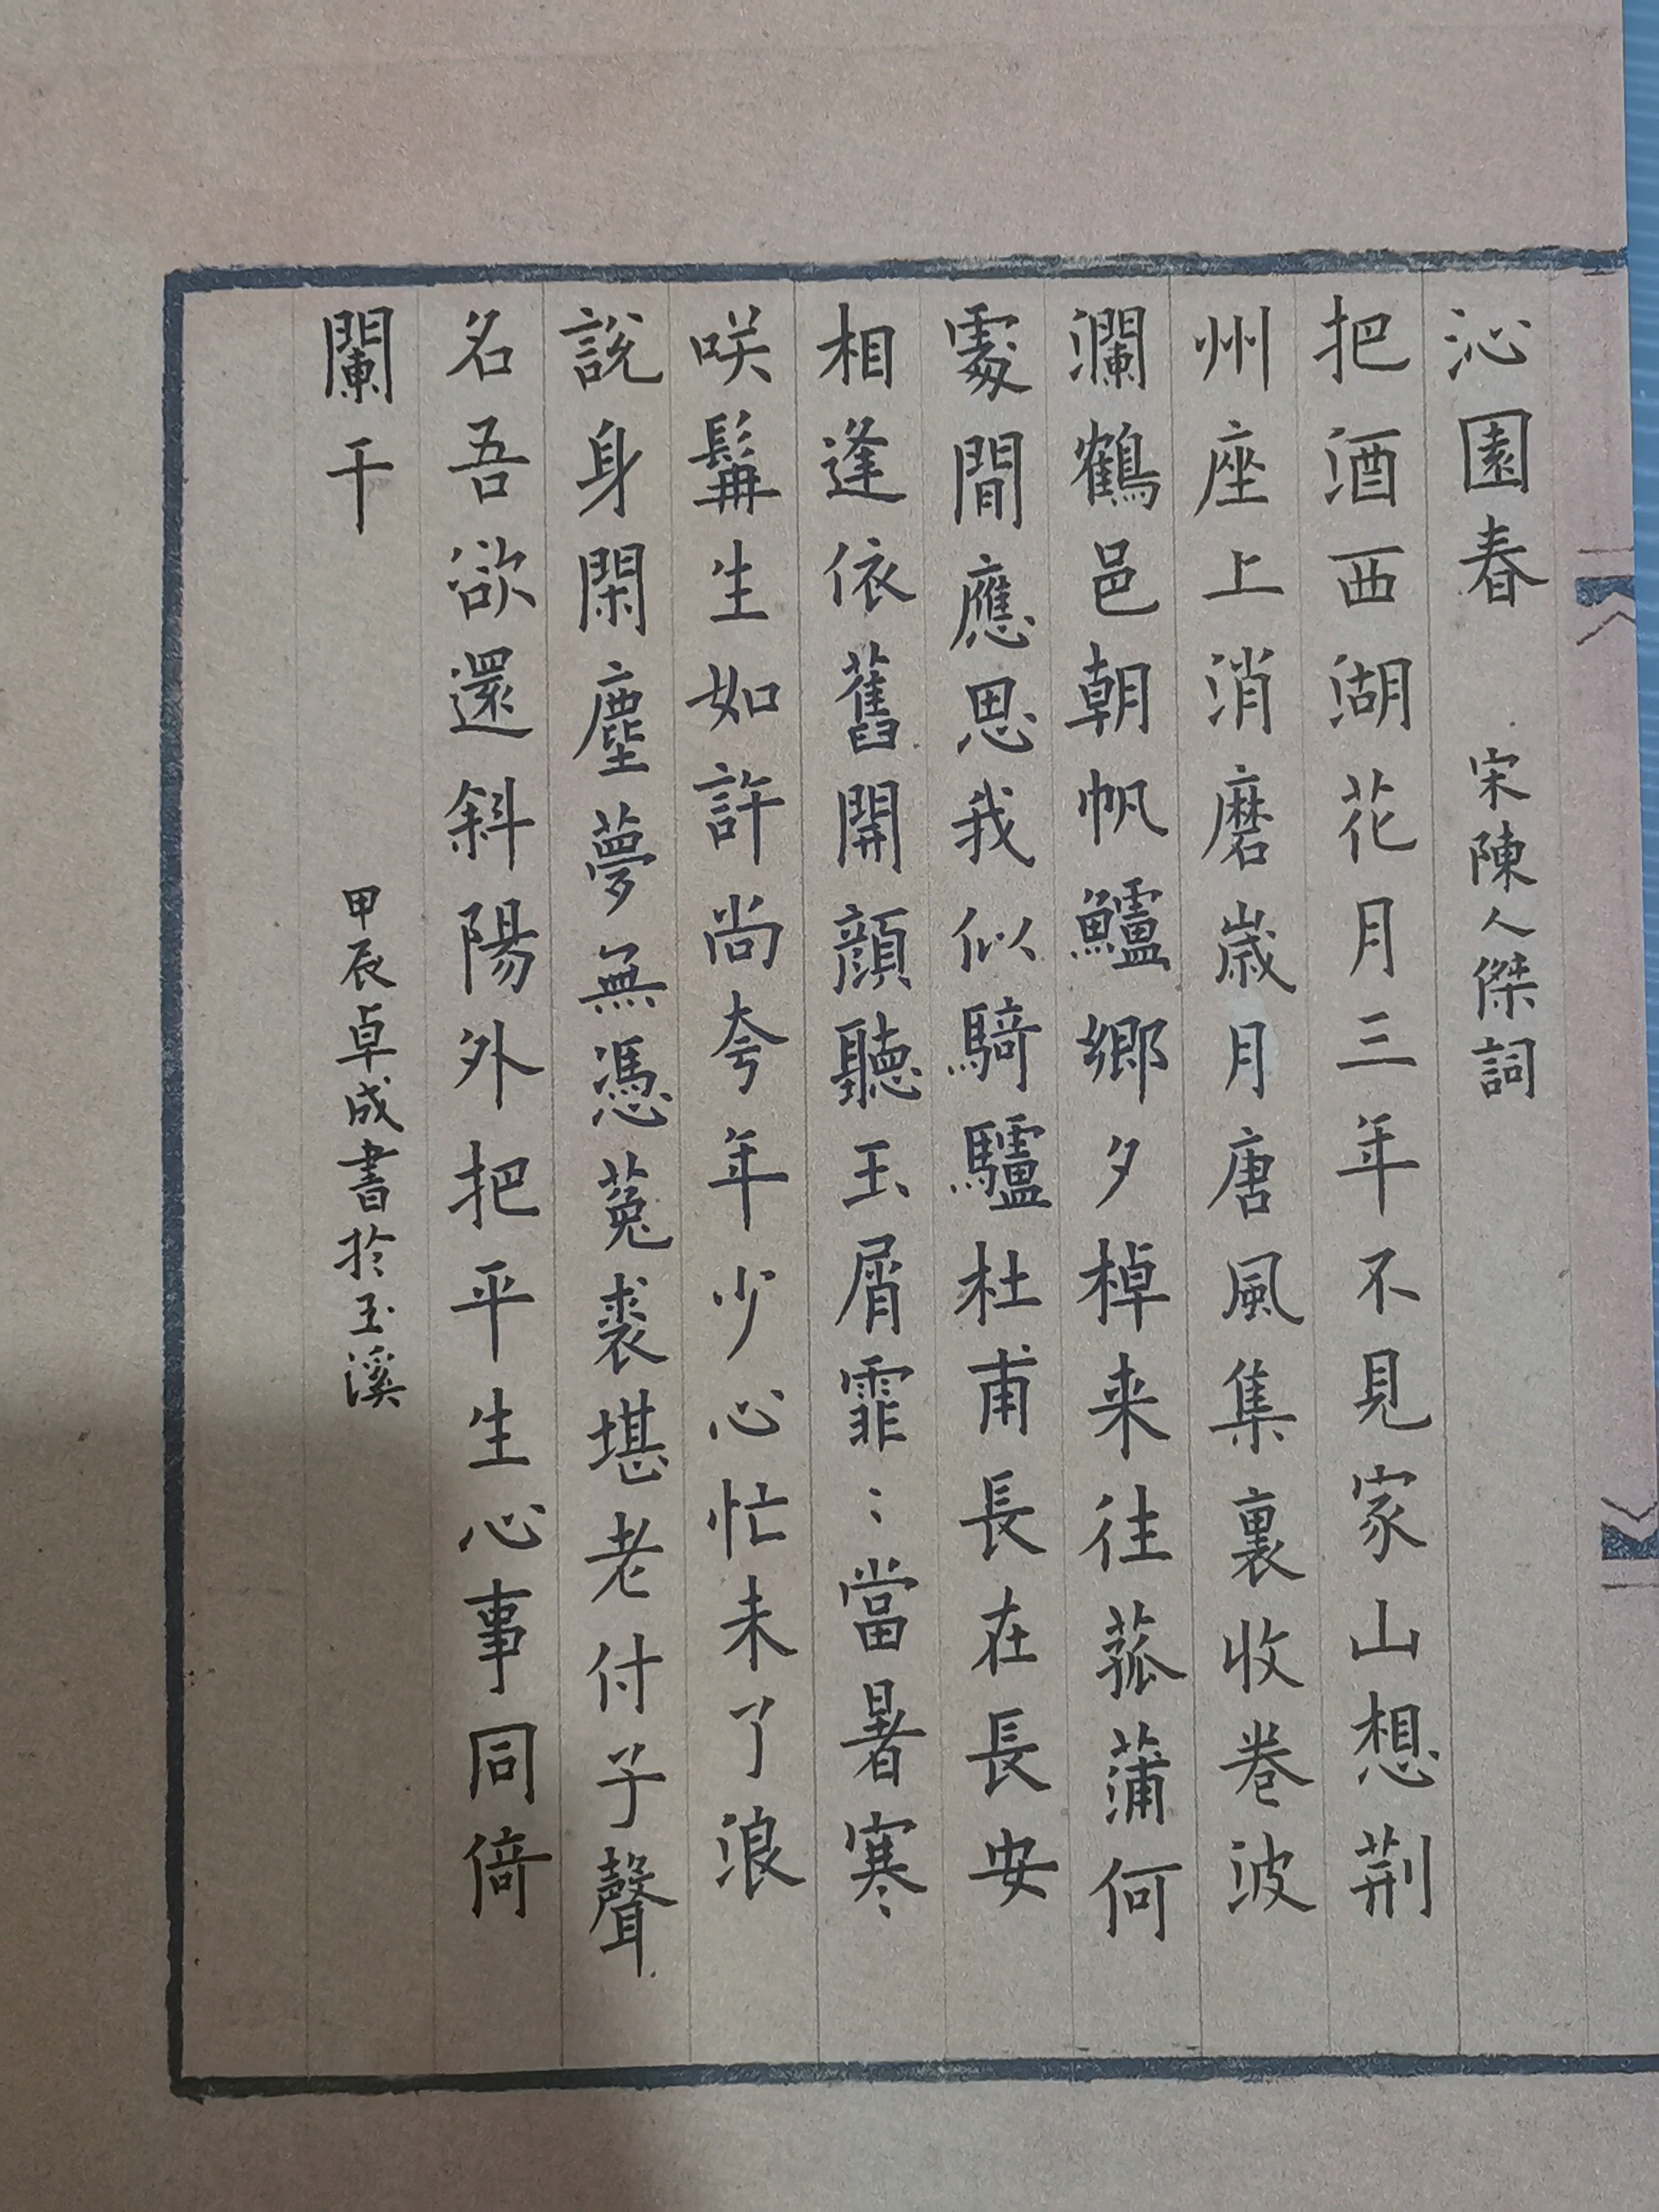 沁園春 宋陳人傑詞
把酒西湖花月三年不見家山想荆
州座上消磨歲月唐風集裏收卷波
瀾鶴邑朝帆鱸鄉夕棹来往菰蒲何
處間應思我似騎驢杜甫長在長安
相逢依舊開顔聽玉屑霏：當暑寒
咲髯生如許尚夸年少心忙未了浪
說身閑塵夢無憑菟裘堪老付予聲
名吾欲還斜陽外把平生心事同倚
闌干
甲辰卓成書於玉溪